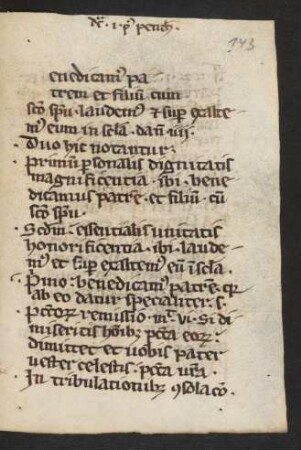 dt̄. i. pꝰ penth̄.
143
enedicamꝰ pa
trem et filiū cum
sc̄o sp̄u. laudemꝰ ⁊ suꝑ exalte
mꝰ eum in sc̄la. dan̄ iii.
Duo hic notantur.
primū ꝑsonalis dignitatis
magnificentia. ibi. bene
dicamus patrē. et filiū. cū
sc̄o sp̄u.
Sc̄dm. essentialis unitatis
honorificentia. ibi. laude
mꝰ et suꝑ exaltemꝰ eū ī sc̄la.
Primo. benedicamꝰ patrē. qꝛ
ab eo datur specialiter. s.
pc̄coꝝ remissio. mͭ. vi. Si di
miseritis hoībꝫ pc̄ca eoꝝ.
dimittet et vobis pater
vester celestis. pc̄ca vr̄a.
In tribulationibꝫ ꝯsolac̄o.